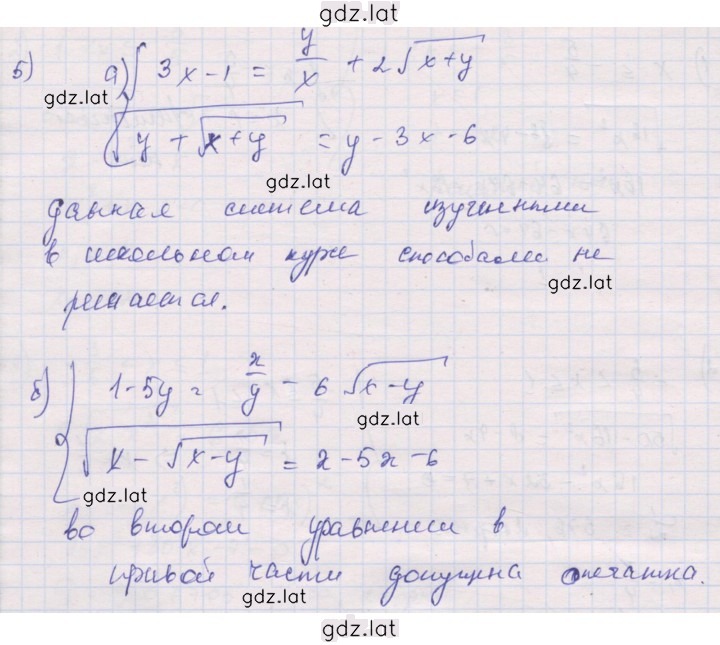 gdz.lat
5) а) { 3x-1 = y/x + 2√(x+y)
gdz.lat
√(y + √(x+y)) = y-3x-6
gdz.lat
данная система изученными
в школьном курсе способами не
gdz.lat
решается.
б) { 1-5y = x/y - 6√(x-y)
gdz.lat
√(x-√(x-y)) = x-5x-6
gdz.lat
во втором уравнении в
правой части допущена опечатка.
gdz.lat
gdz.lat